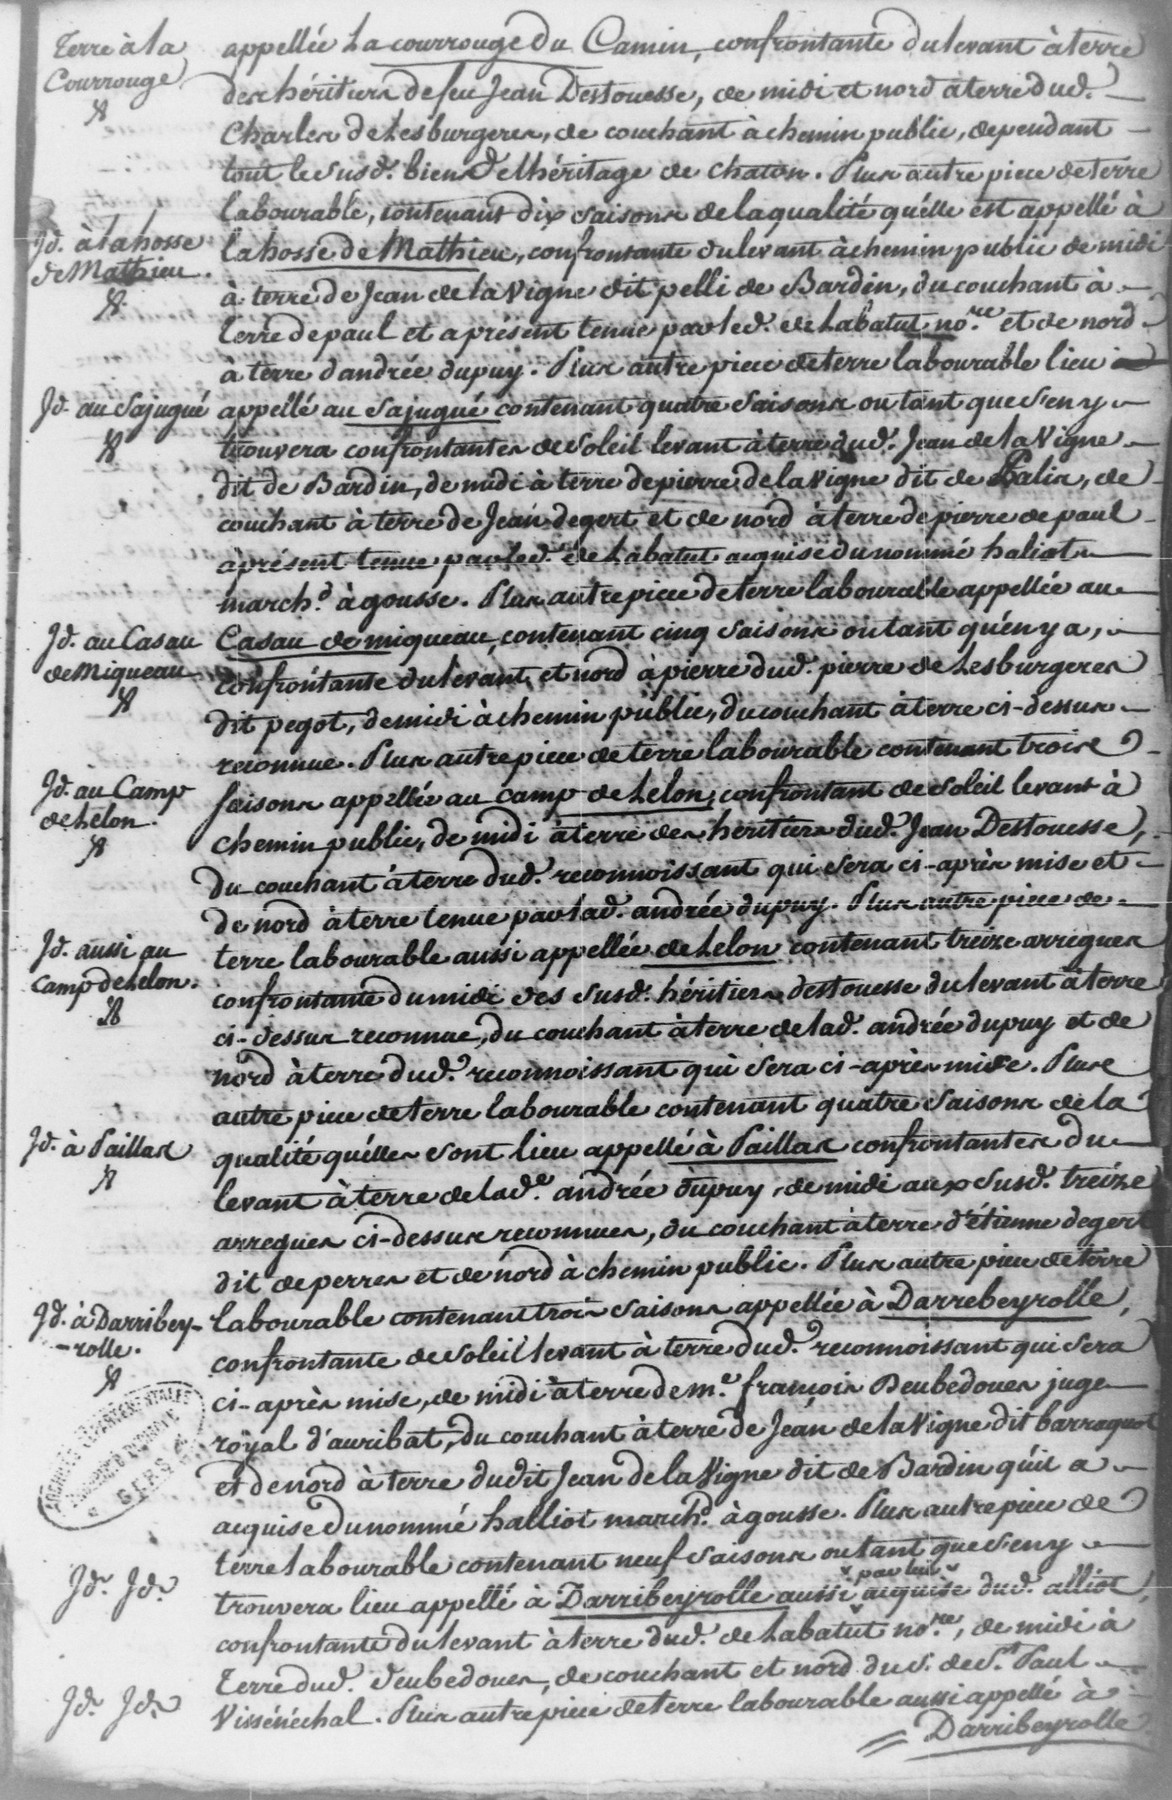 Terre à la
Courrouge
appellée La courrouge du Camin, confrontante du levant à terre
des héritiers de feu Jean Destouesse, de midi et nord à terre dud.
Charles de Lesburgeres, de couchant à chemin public, dependant
tout le susd. bien de lhéritage de chaton. Plus autre piece de terre
labourable, contenant dix saisons de la qualité qu'elle est appellé à
Jd. à la hosse
de Mathieu.
la hosse de Mathieu, confrontante du levant à chemin public de midi
à terre de Jean de la Vigne dit pelli de Bardin, du couchant à
terre de paul et a présent tenue par led. de Labatut no.re et de nord
à terre d'andrée dupuy. Plus autre piece de terre labourable lieu
Jd. au Sajugué
appéllé au Sajugué contenant quatre saisons ou tant que s'en y
trouvera confrontantes de soleil levant à terre dud. Jean de la Vigne
dit de Bardin, de midi à terre de pierre de la Vigne dit de Palis, de
couchant à terre de Jean degert et de nord à terre de pierre de paul
àprésent tenue par led. de Labatut acquise du nommé haliot
march.d à gousse. Plus autre piece de terre labourable appellée au
Jd. au Casau
de Miqueau
Casau de miqueau, contenant cinq saisons ou tant qu'en y a,
confrontante du levant et nord à pierre dud. pierre de Lesburgeres
dit pegot, de midi à chemin public, du couchant à terre ci-dessus
reconnue. Plus autre piece de terre labourable contenant trois
Jd. au Camp
de Lelon.
saisons appellée au camp de Lelon, confrontant de soleil levant à
chemin public, de midi à terre des héritiers dud. Jean Destouesse,
du couchant à terre dud. reconnoissant qui sera ci-après mise et
de nord à terre tenue par lad. andrée dupuy. Plus autre piece de
Jd. aussi au
Camp de Lelon.
terre labourable aussi appellée de Lelon contenant treize arregues
confrontante du midi des susd. héritiers destouesse du levant à terre
ci-dessus reconnue, du couchant à terre de lad. andrée dupuy et de
nord à terre dud. reconnoissant qui sera ci-après mise. Plus
autre piece de terre labourable contenant quatre saisons de la
Jd. à Paillas
qualité qu'elles sont lieu appellé à Paillas confrontantes du
levant à terre de lad.e andrée dupuy, de midi aux susd. treize
arregues ci-dessus reconnues, du couchant à terre d'étienne degert
dit de perres et de nord à chemin public. Plus autre piece de terre
Jd. à Darribey-
-rolle.
labourable contenant trois saisons appellée à Darrebeyrolle,
confrontante de soleil levant à terre dud. reconnoissant qui sera
ci-après mise, de midi à terre de m.e françois Deubedoues juge
royal d'auribat, du couchant à terre de Jean de la Vigne dit barraquot
et de nord à terre dudit Jean de la Vigne dit de Bardin qu'il a
acquise du nommé halliot march.d à gousse. Plus autre piece de
terre labourable contenant neuf saisons ou tant que s'en y
Jd. Jd.
par lui
trouvera lieu appellé à Darribeyrolle aussi acquise dud. alliot,
confrontante du levant à terre dud. de Labatut no.re, de midi à
terre dud. deubedoues, de couchant et nord du s. de S.t Paul
Jd. Jd.
Vissénéchal. Plus autre piece de terre labourable aussi appellé à
Darribeyrolle
ARCHIVES DEPARTEMENTALES
GERS